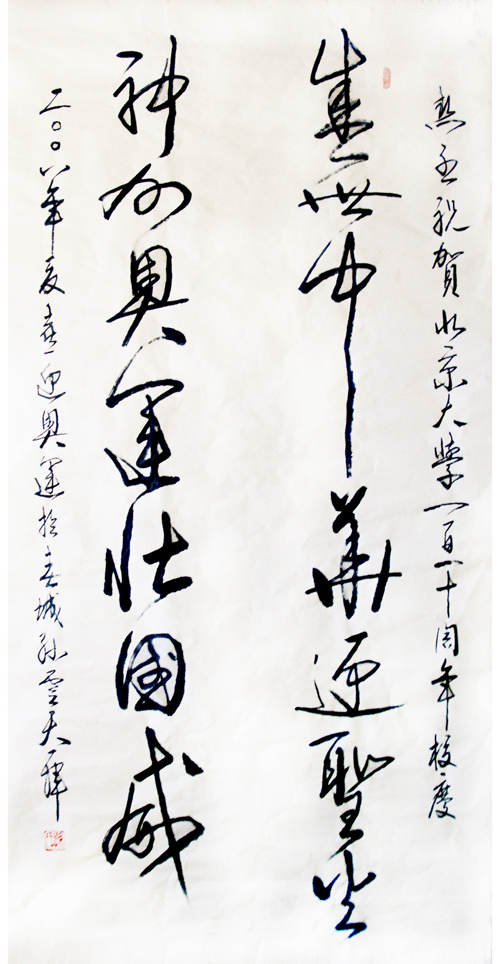 热烈祝贺北京大学一百一十周年校庆
盛世中华迎圣火
神州奥运壮国威
二〇〇八年夏喜迎奥运于春城孙云天拜